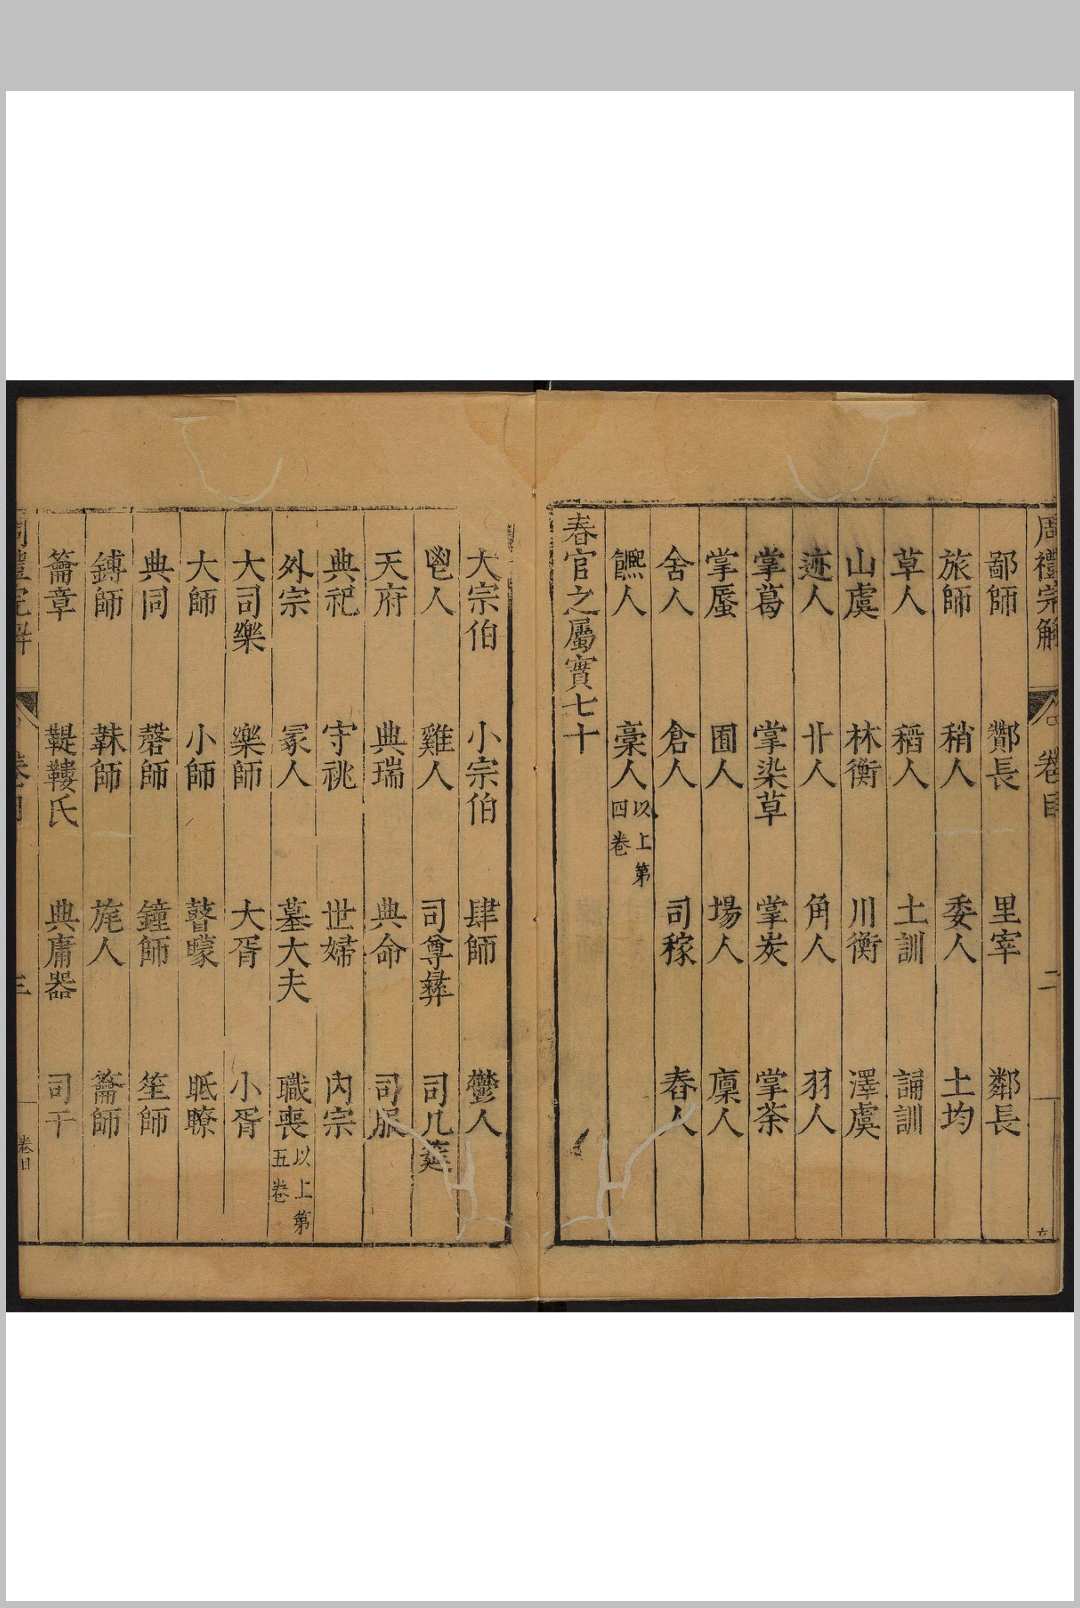 周禮完解 卷目 二
鄙師 酇長 里宰 鄰長
旅師 稍人 委人 土均
草人 稻人 土訓 誦訓
山虞 林衡 川衡 澤虞
迹人 卝人 角人 羽人
掌葛 掌染草 掌炭 掌荼
掌蜃 囿人 場人 廩人
舍人 倉人 司稼 舂人
饎人 槀人 以上第四卷
春官之屬實七十
大宗伯 小宗伯 肆師 鬱人
鬯人 雞人 司尊彝 司几筵
天府 典瑞 典命 司服
典祀 守祧 世婦 內宗
外宗 冢人 墓大夫 職喪 以上第五卷
大司樂 樂師 大胥 小胥
大師 小師 瞽矇 眡瞭
典同 磬師 鐘師 笙師
鎛師 韎師 旄人 籥師
籥章 鞮鞻氏 典庸器 司干
周禮完解 卷目 三 卷目